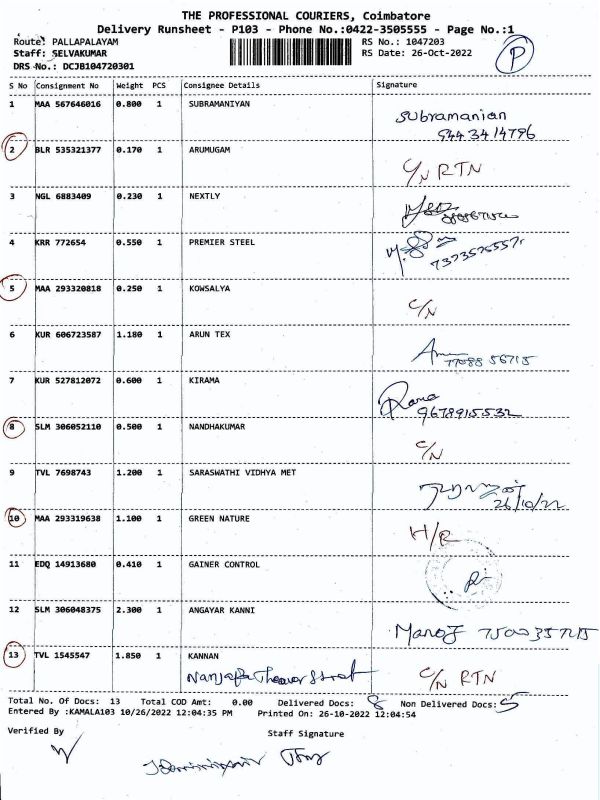 THE PROFESSIONAL COURIERS, Coimbatore
Delivery Runsheet - P103 - Phone No.:0422-3505555 - Page No.:1
Route: PALLAPALAYAM RS No.: 1047203
Staff: SELVAKUMAR RS Date: 26-Oct-2022
DRS No.: DCJB104720301
P
S No Consignment No Weight PCS Consignee Details Signature
1 MAA 567646016 0.800 1 SUBRAMANIYAN
Subramanian
9443414796
2 BLR 535321377 0.170 1 ARUMUGAM
C/N RTN
3 NGL 6883409 0.230 1 NEXTLY
4 KRR 772654 0.550 1 PREMIER STEEL
5 MAA 293320818 0.250 1 KOWSALYA
C/N
6 KUR 606723587 1.180 1 ARUN TEX
77088 56715
7 KUR 527812072 0.600 1 KIRAMA
Rama
9678915532
8 SLM 306052110 0.500 1 NANDHAKUMAR
C/N
9 TVL 7698743 1.200 1 SARASWATHI VIDHYA MET
26/10/22
10 MAA 293319638 1.100 1 GREEN NATURE
H/R
11 EDQ 14913680 0.410 1 GAINER CONTROL
12 SLM 306048375 2.300 1 ANGAYAR KANNI
Manoj
13 TVL 1545547 1.850 1 KANNAN
C/N RTN
Total No. Of Docs: 13 Total COD Amt: 0.00 Delivered Docs: 8 Non Delivered Docs: 5
Entered By :KAMALA103 10/26/2022 12:04:35 PM Printed On: 26-10-2022 12:04:54
Verified By Staff Signature